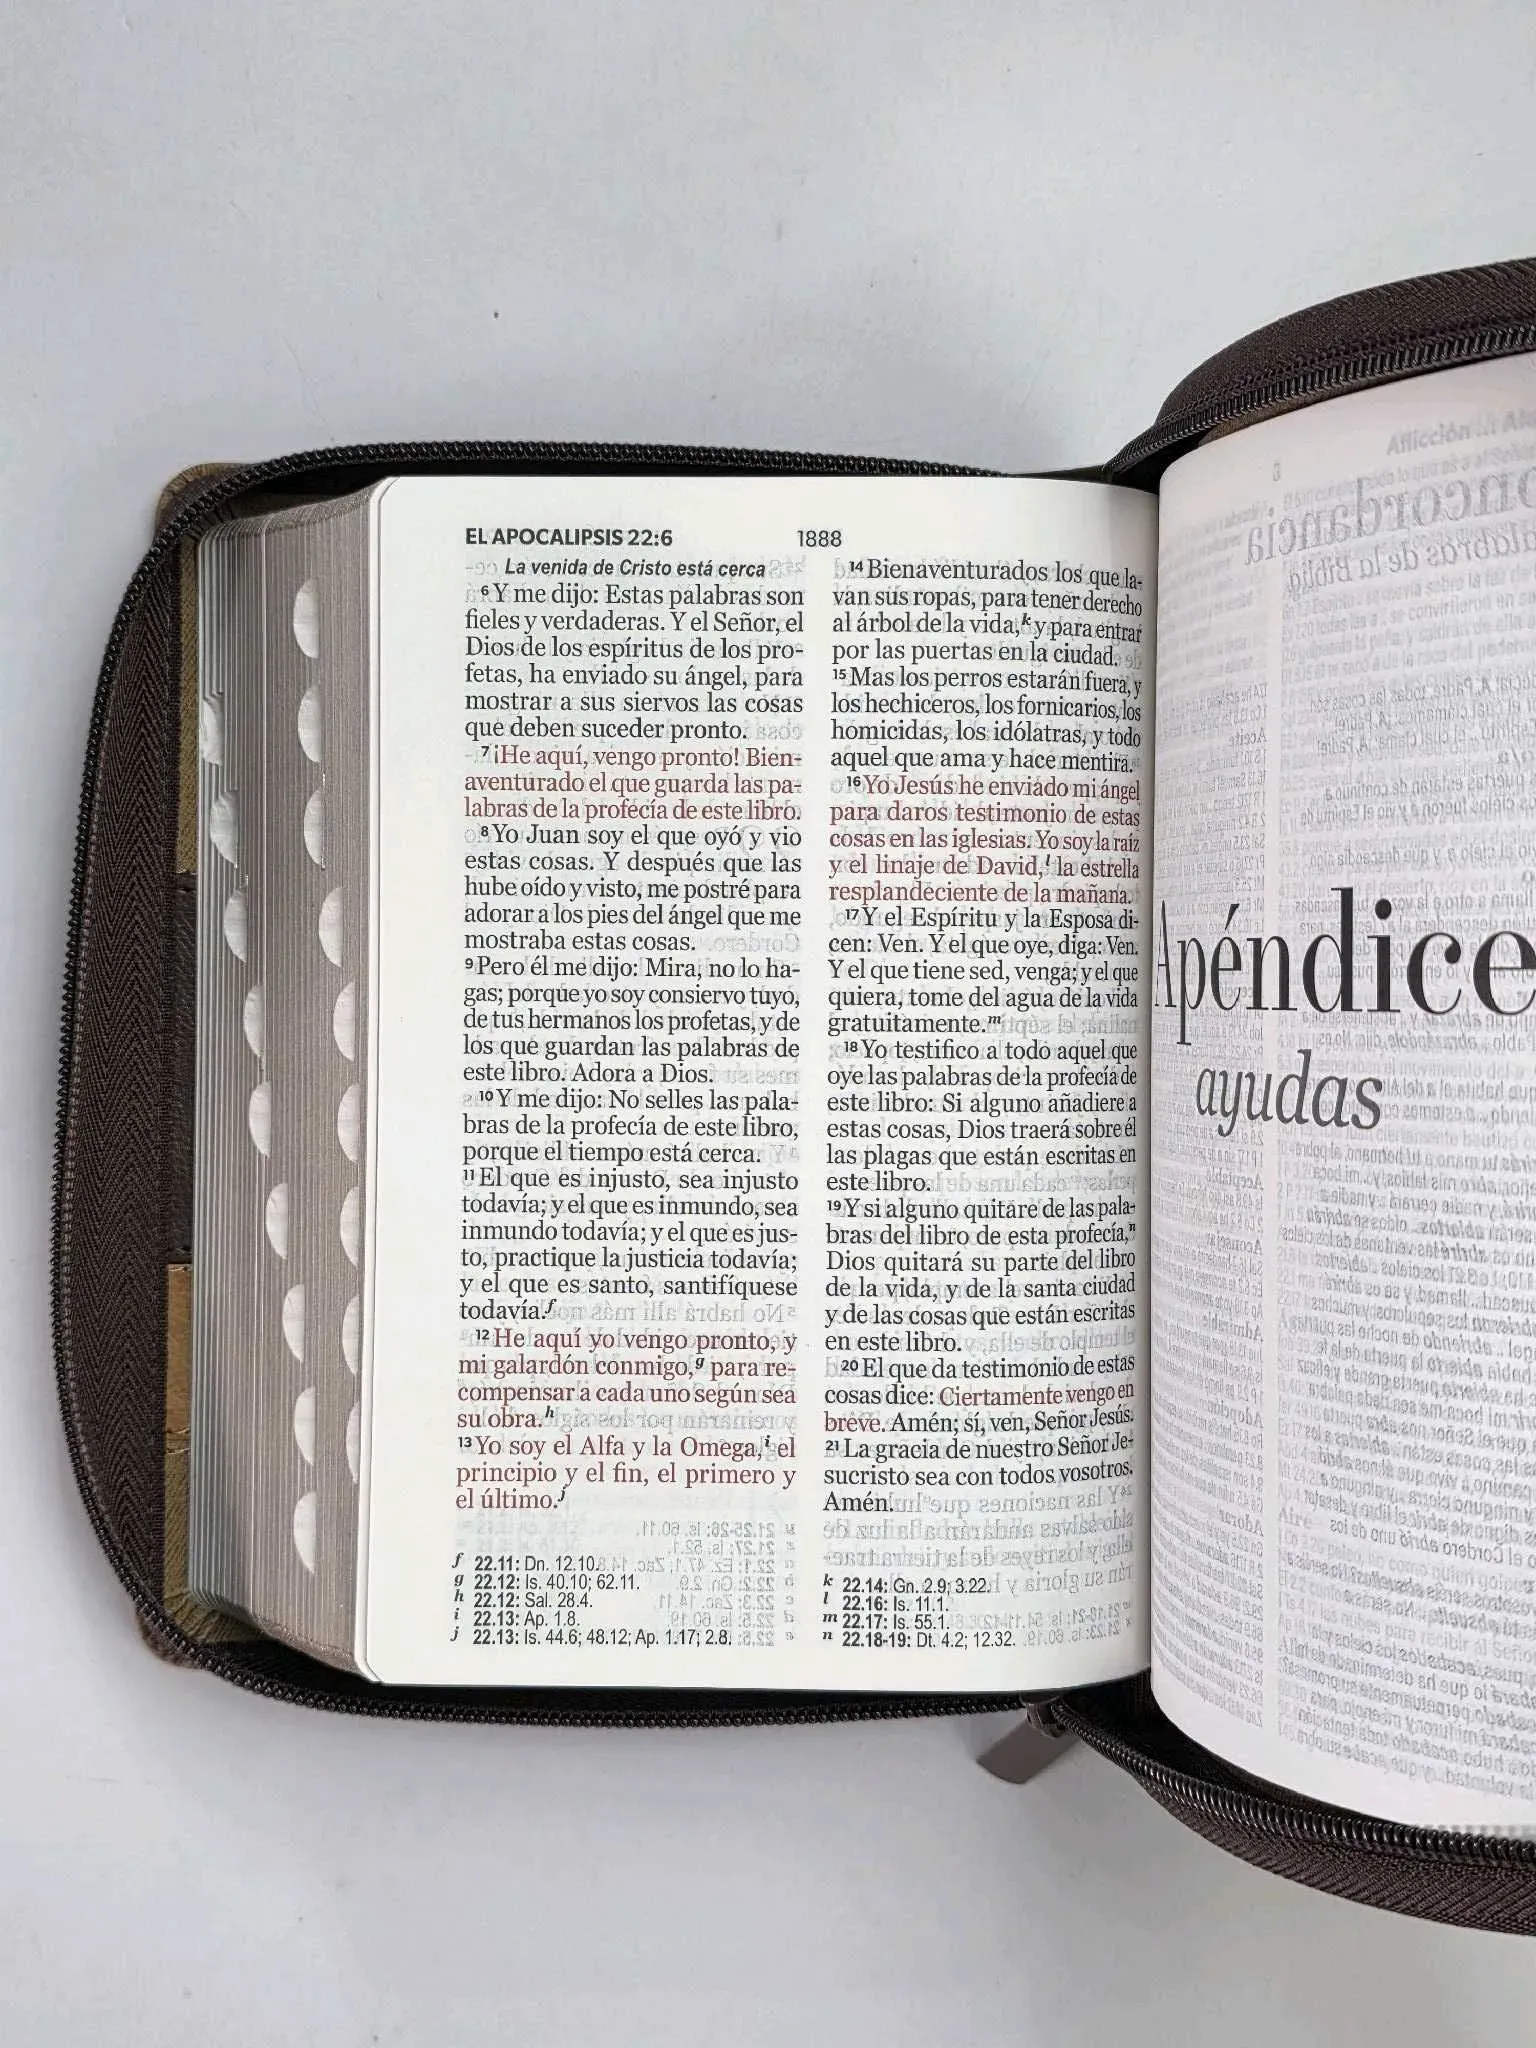 EL APOCALIPSIS 22:6
1888
La venida de Cristo está cerca
6 Y me dijo: Estas palabras son
fieles y verdaderas. Y el Señor, el
Dios de los espíritus de los pro-
fetas, ha enviado su ángel, para
mostrar a sus siervos las cosas
que deben suceder pronto.
7 ¡He aquí, vengo pronto! Bien-
aventurado el que guarda las pa-
labras de la profecía de este libro.
8 Yo Juan soy el que oyó y vio
estas cosas. Y después que las
hube oído y visto, me postré para
adorar a los pies del ángel que me
mostraba estas cosas.
9 Pero él me dijo: Mira, no lo ha-
gas; porque yo soy consiervo tuyo,
de tus hermanos los profetas, y de
los que guardan las palabras de
este libro. Adora a Dios.
10 Y me dijo: No selles las pala-
bras de la profecía de este libro,
porque el tiempo está cerca.
11 El que es injusto, sea injusto
todavía; y el que es inmundo, sea
inmundo todavía; y el que es jus-
to, practique la justicia todavía;
y el que es santo, santifíquese
todavía.f
12 He aquí yo vengo pronto, y
mi galardón conmigo,g para re-
compensar a cada uno según sea
su obra.h
13 Yo soy el Alfa y la Omega,i el
principio y el fin, el primero y
el último.j
f 22.11: Dn. 12.10.
g 22.12: Is. 40.10; 62.11.
h 22.12: Sal. 28.4.
i 22.13: Ap. 1.8.
j 22.13: Is. 44.6; 48.12; Ap. 1.17; 2.8.
14 Bienaventurados los que la-
van sus ropas, para tener derecho
al árbol de la vida,k y para entrar
por las puertas en la ciudad.
15 Mas los perros estarán fuera, y
los hechiceros, los fornicarios, los
homicidas, los idólatras, y todo
aquel que ama y hace mentira.
16 Yo Jesús he enviado mi ángel
para daros testimonio de estas
cosas en las iglesias. Yo soy la raíz
y el linaje de David,l la estrella
resplandeciente de la mañana.
17 Y el Espíritu y la Esposa di-
cen: Ven. Y el que oye, diga: Ven.
Y el que tiene sed, venga; y el que
quiera, tome del agua de la vida
gratuitamente.m
18 Yo testifico a todo aquel que
oye las palabras de la profecía de
este libro: Si alguno añadiere a
estas cosas, Dios traerá sobre él
las plagas que están escritas en
este libro.
19 Y si alguno quitare de las pala-
bras del libro de esta profecía,n
Dios quitará su parte del libro
de la vida, y de la santa ciudad
y de las cosas que están escritas
en este libro.
20 El que da testimonio de estas
cosas dice: Ciertamente vengo en
breve. Amén; sí, ven, Señor Jesús.
21 La gracia de nuestro Señor Je-
sucristo sea con todos vosotros.
Amén.
k 22.14: Gn. 2.9; 3.22.
l 22.16: Is. 11.1.
m 22.17: Is. 55.1.
n 22.18-19: Dt. 4.2; 12.32.
Apéndice
ayudas